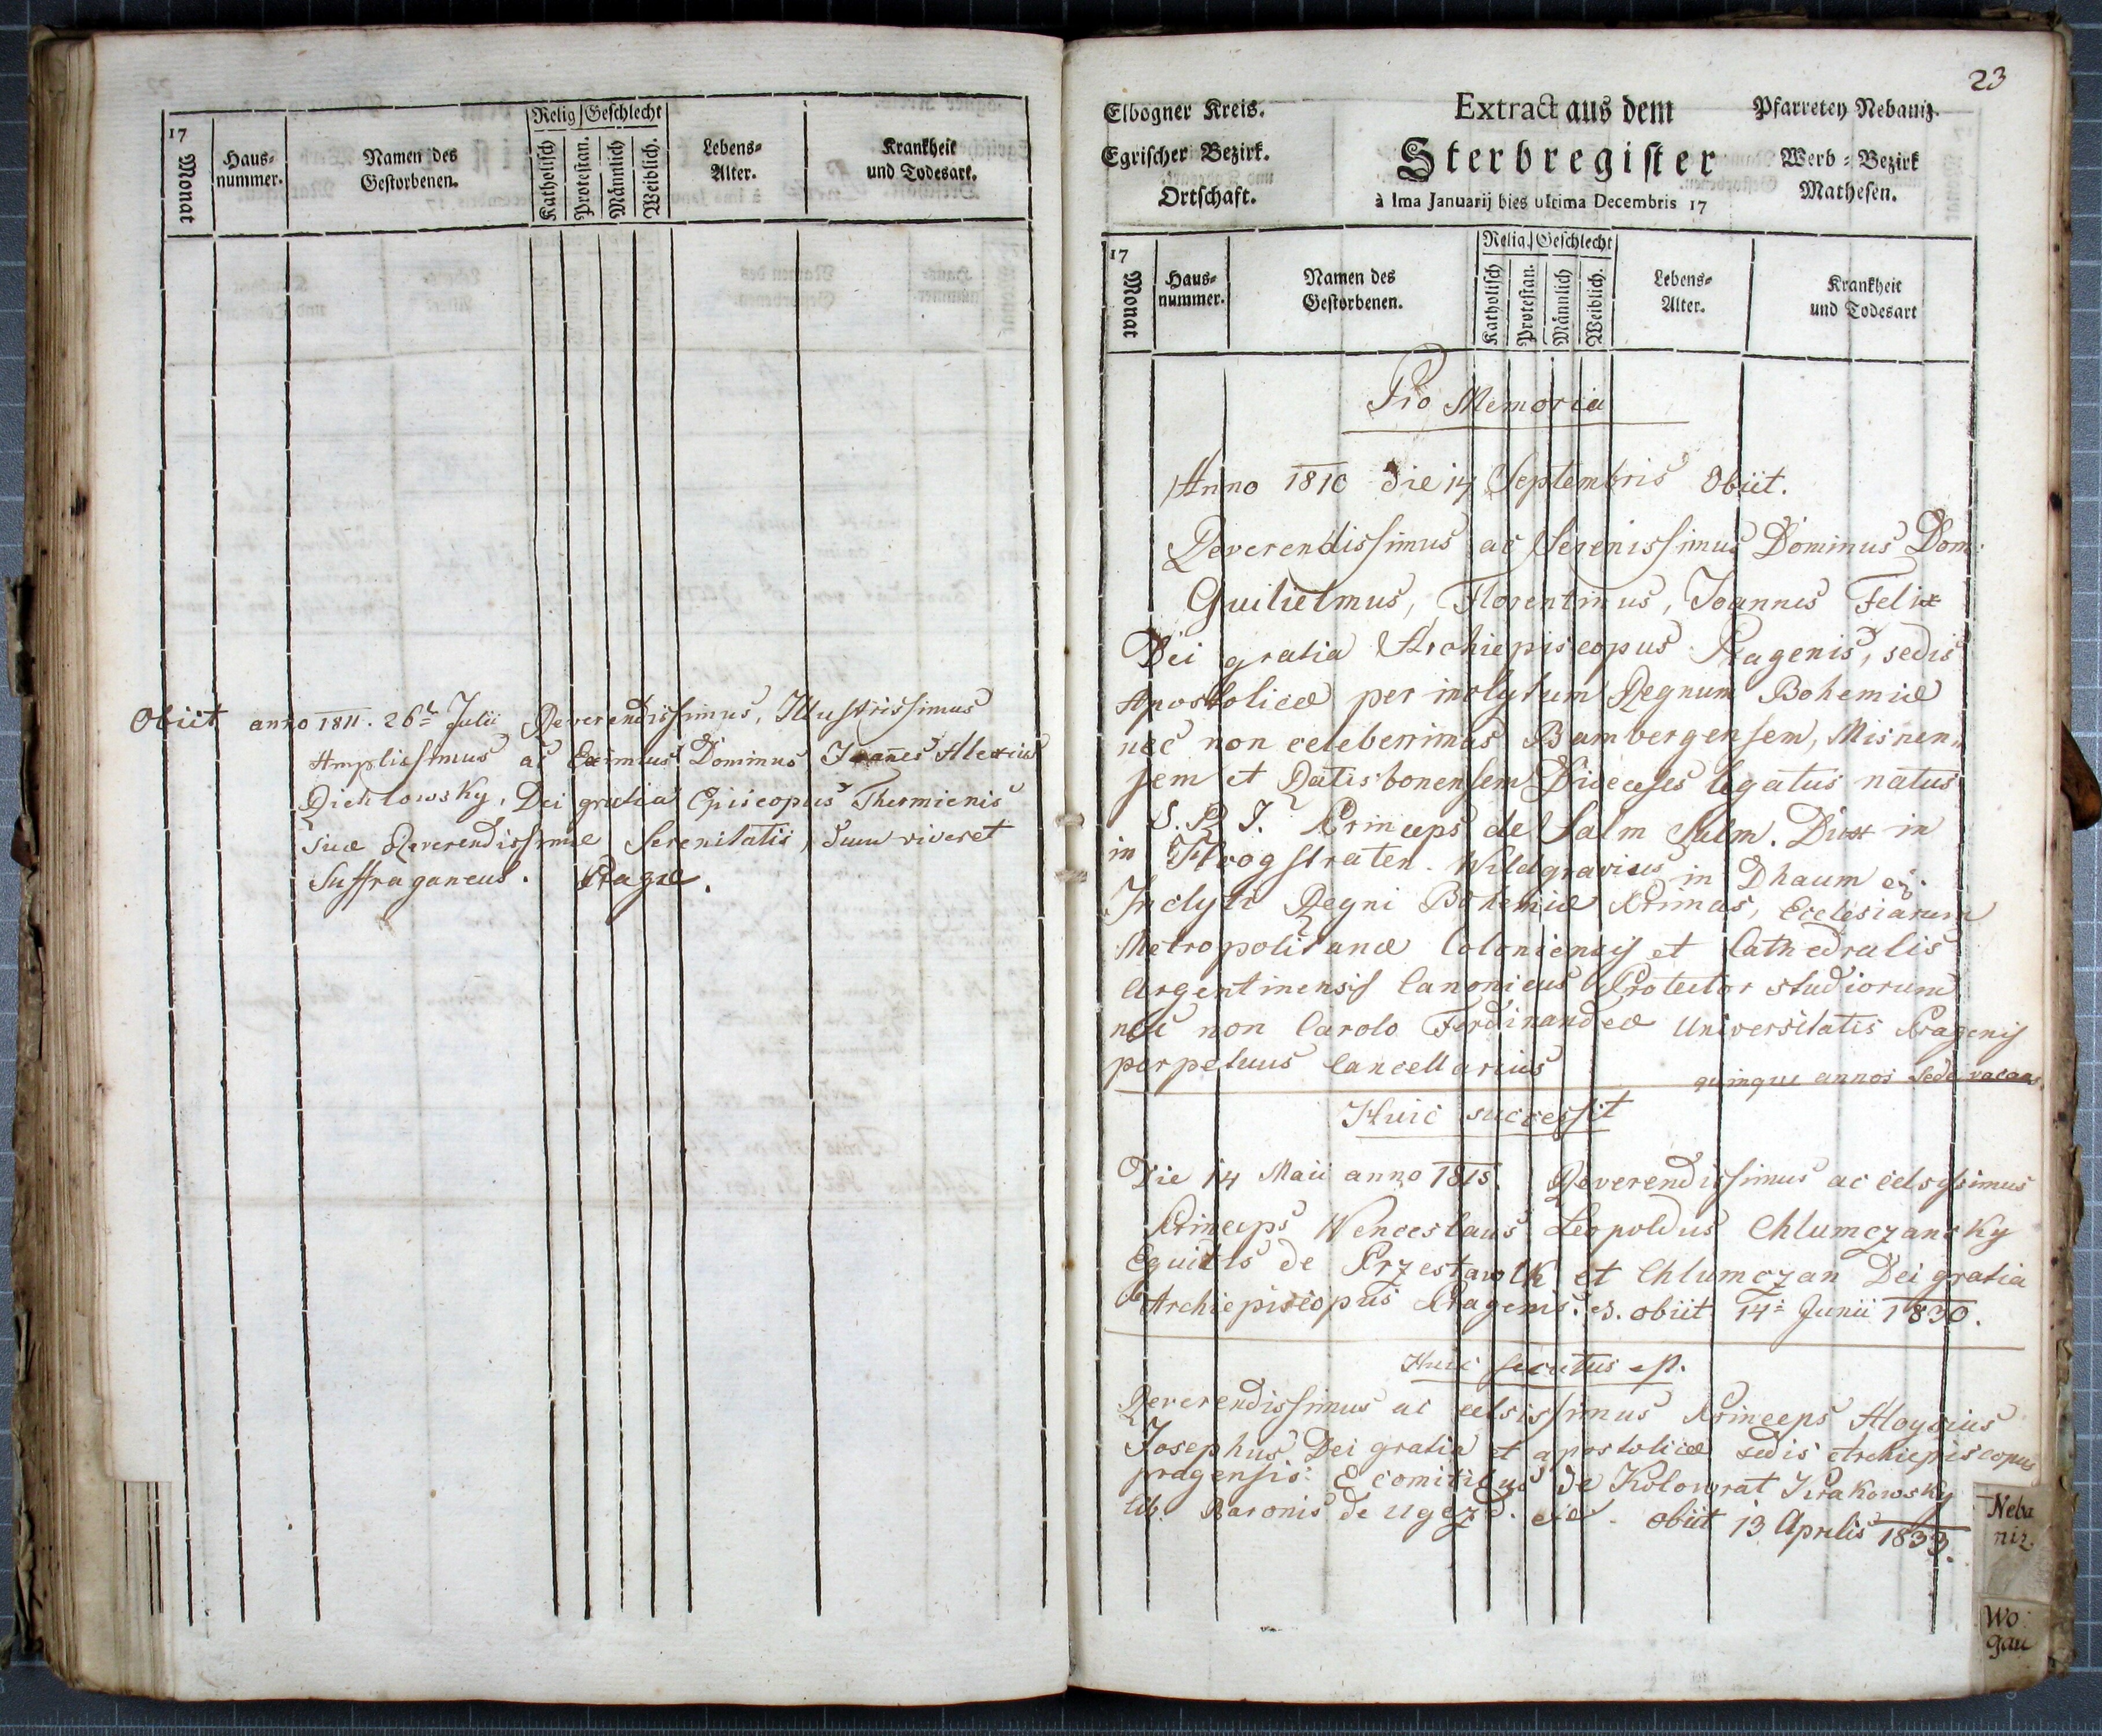 17
Monat
Haus=
nummer.
Namen des
Gestorbenen.
Relig Geschlecht
Katholisch
Protestan.
Männlich
Weiblich.
Lebens=
Alter.
Krankheit
und Todesart.
Obiit anno 1811. 26t Julii Reverendissimus, Illustrissimus
Amplissimus ac Eximius Dominus Joannes Alexius
Dichlowsky, Dei gratia Episcopus Thermienis
suæ Reverendissimæ Serenitatis, dum viveret
Suffraganeus. Pragæ.
23
Elbogner Kreis.
Egrischer Bezirk.
Ortschaft.
Extract aus dem
Sterbregister
à Ima Januarij bies ultima Decembris 17
Pfarretey Nebaniz
Werb = Bezirk
Mathesen.
17
Monat
Haus=
nummer.
Namen des
Gestorbenen.
Relig. Geschlecht
Katholisch
Protestan.
Männlich
Weiblich.
Lebens=
Alter.
Krankheit
und Todesart
Pro Memoria
Anno 1810 die 14 Septembris Obiit.
Reverendissimus ac Serenissimus Dominus Dom:
Guilielmus, Florentinus, Joannes Felix
Dei gratia Archiepiscopus Pragenis, sedis
Apostolicæ per inclytum Regnum Bohemiæ
nec non celeberrimas Bambergensem, Misnen„
sem et Ratisbonensem Dioeceses legatus natus
S. R. I. Princeps de Salm Salm. Dux in
in Hoogstraten. Wildgravius in Dhaum
Inclyti Regni Bohemiæ Primas, Ecclesiarum
Metropolitanæ Coloniensis et Cathedralis
Argentinensis Canonicus Protector studiorum
nec non Carolo Ferdinandeæ Universitatis Pragenis
perpetuus Cancellarius
quinque annos Sede vacans
Huic successit
Die 14 Maii anno 1815. Reverendissimus ac celsissimus
Princeps Wenceslaus Leopoldus Chlumczansky
Equitis de Przestawlk et Chlumczan Dei gratia
Archiepiscopus Pragenis. obiit 14: Junii 1830.
Huic secutus est.
Reverendissimus ac celsissimus Princeps Aloysius
Josephus Dei gratia et apostolicæ sedis Archiepiscopus
pragensis: E comitibus de Kolowrat Krakowsky
lib. Baronis de Ugezd. obiit 13 Aprilis 1833.
Neba
niz
Wo:
gau